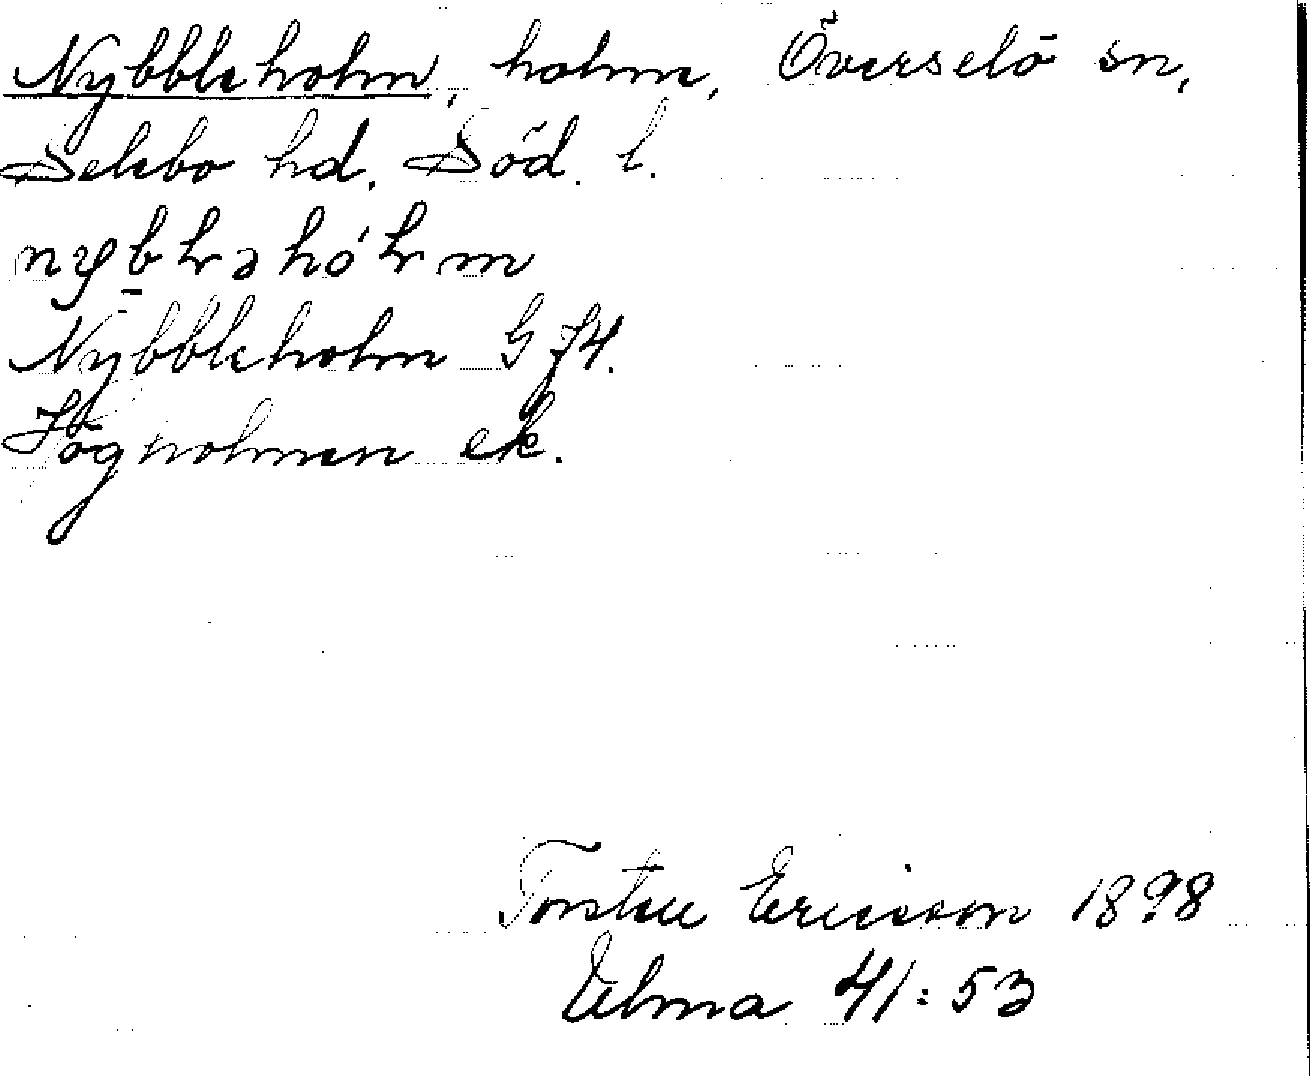 Nybbleholm, holme, Överselö sn,
Selebo hd. Söd. l.
Nybbleholm G 74.
Högholmen ek.
Torsten Ericsson 1898
Ulma 41:53